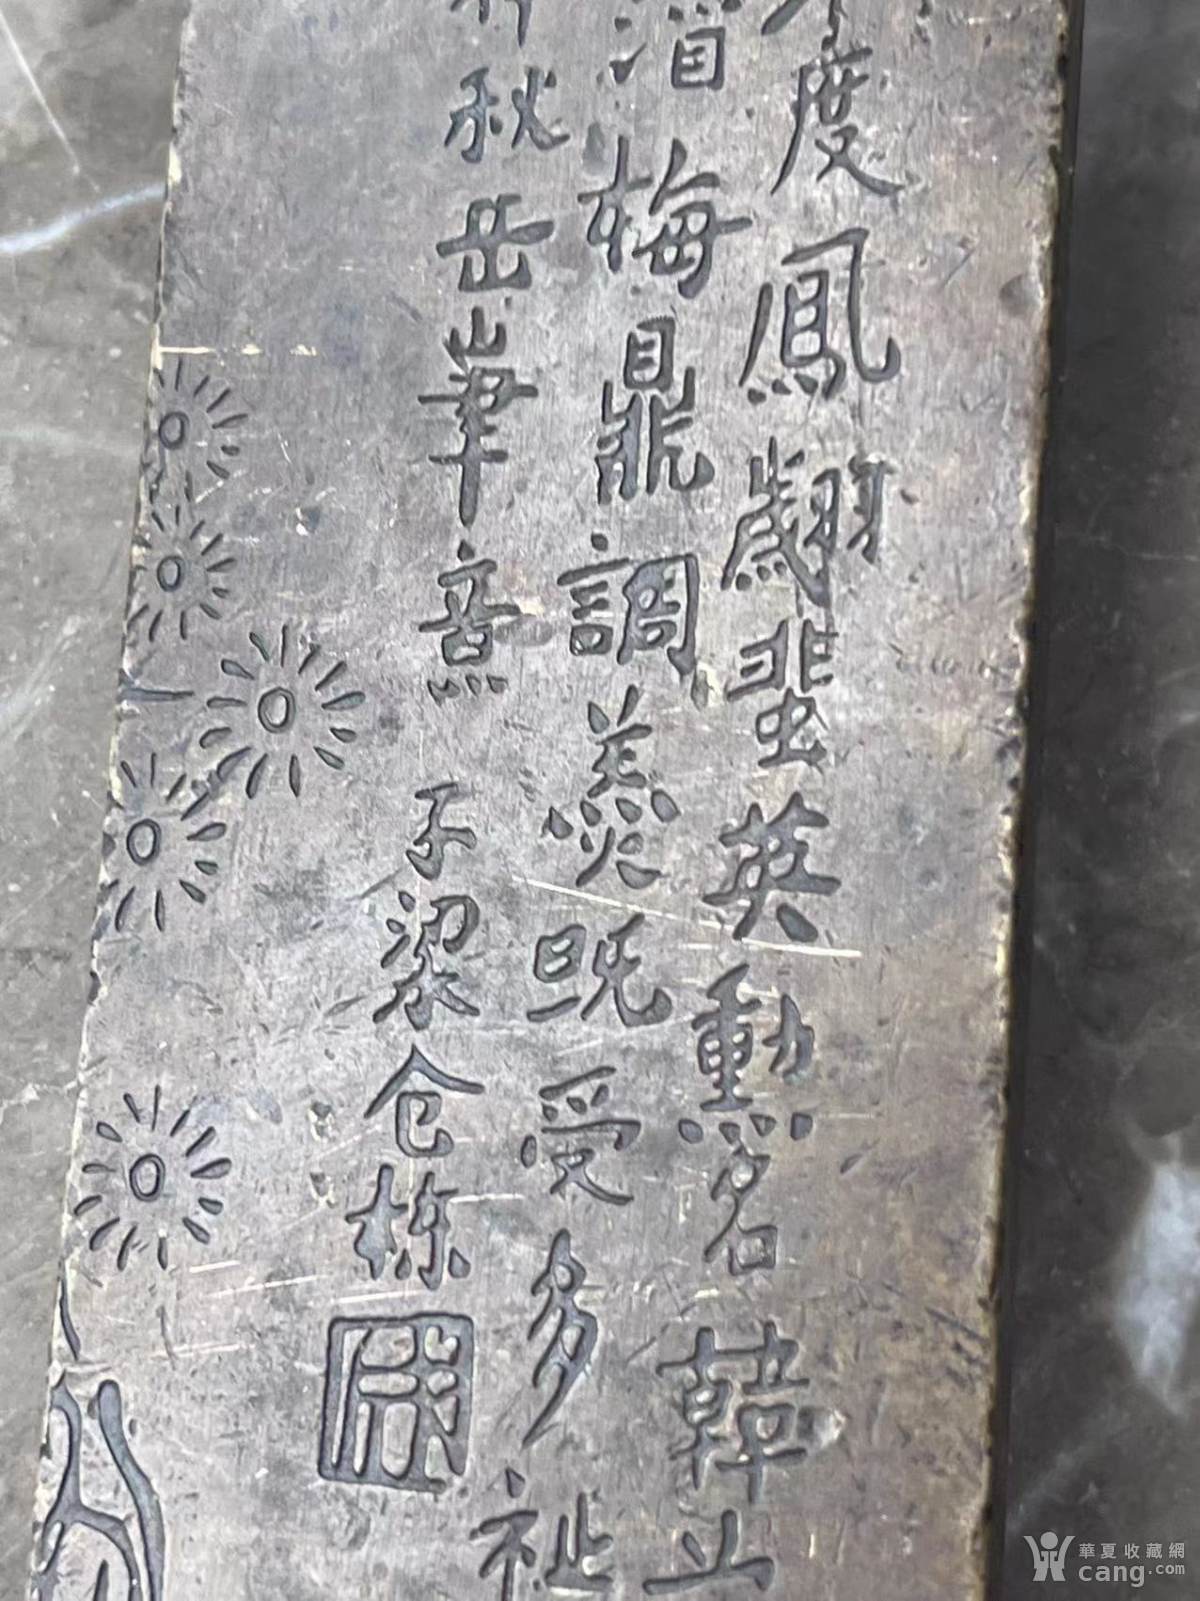 度鳳翽蜚英勳名韓止
梅鼎調羹既受多祉
秋岳筆意 子梁仓栋
華夏收藏網
cang.com